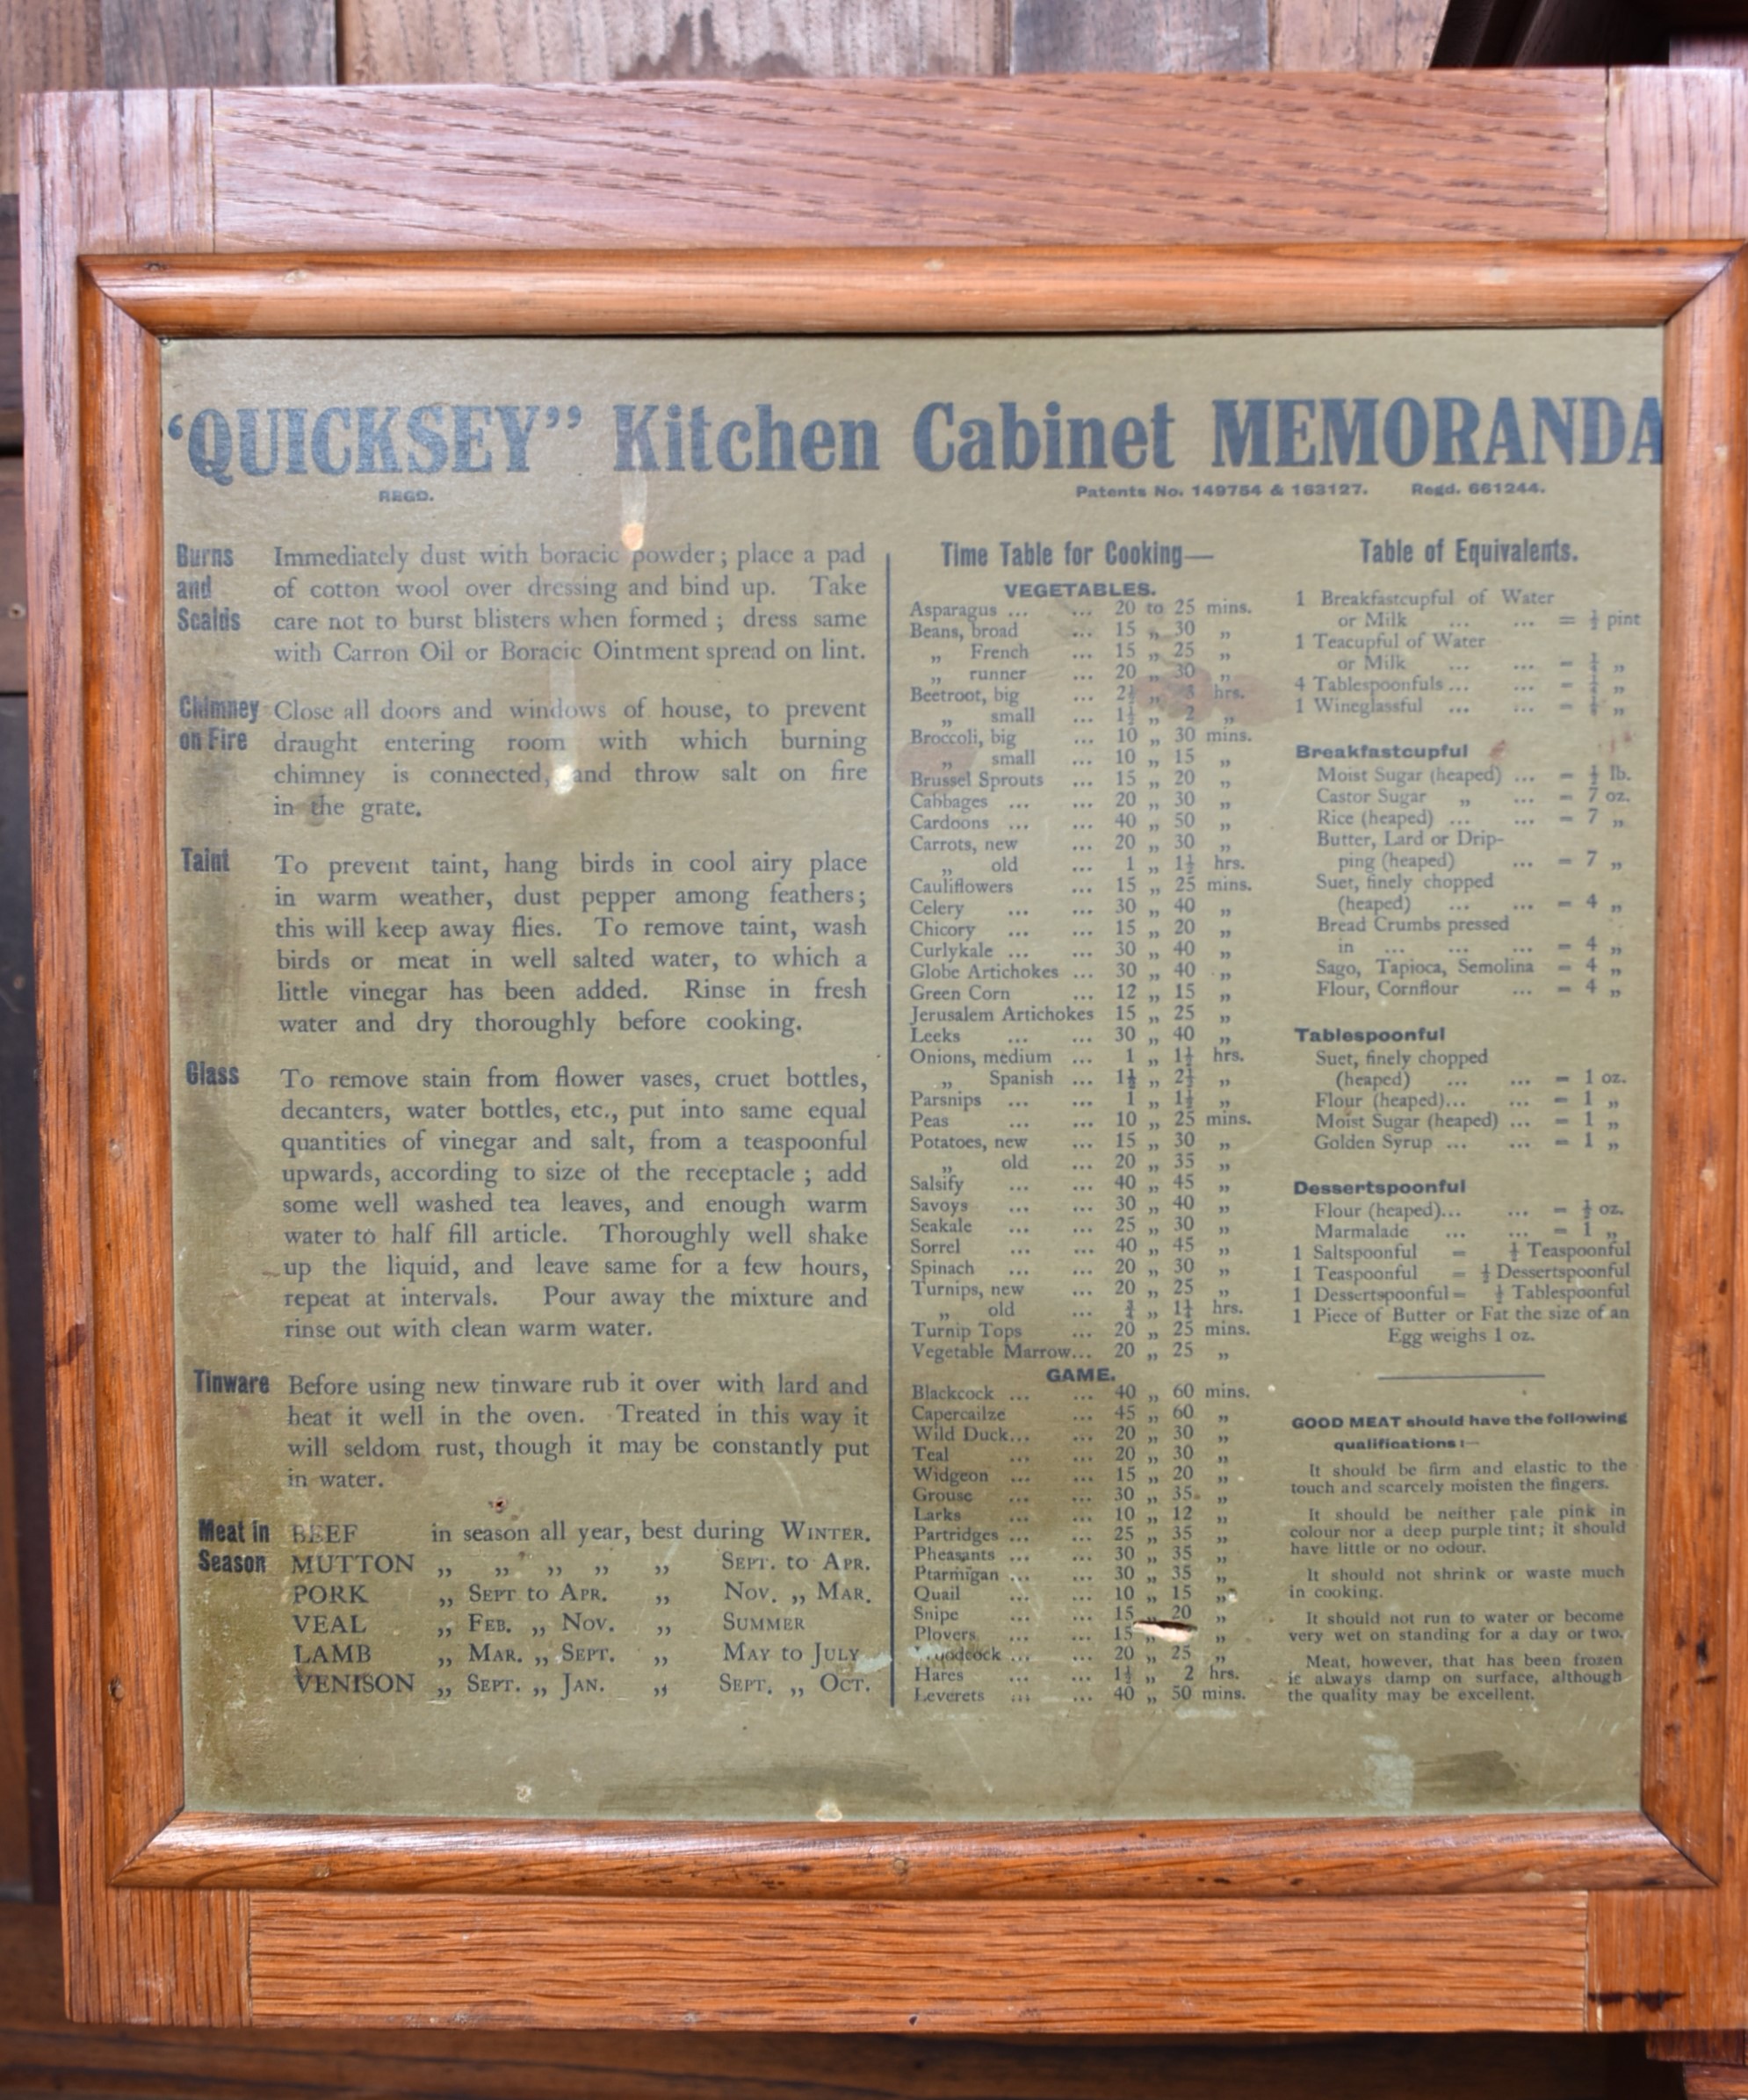 “QUICKSEY” Kitchen Cabinet MEMORANDA
REGD.
Patents No. 149754 & 163127. Regd. 661244.
Burns and Scalds
Immediately dust with boracic powder; place a pad
of cotton wool over dressing and bind up. Take
care not to burst blisters when formed; dress same
with Carron Oil or Boracic Ointment spread on lint.
Chimney on Fire
Close all doors and windows of house, to prevent
draught entering room with which burning
chimney is connected, and throw salt on fire
in the grate.
Taint
To prevent taint, hang birds in cool airy place
in warm weather, dust pepper among feathers;
this will keep away flies. To remove taint, wash
birds or meat in well salted water, to which a
little vinegar has been added. Rinse in fresh
water and dry thoroughly before cooking.
Glass
To remove stain from flower vases, cruet bottles,
decanters, water bottles, etc., put into same equal
quantities of vinegar and salt, from a teaspoonful
upwards, according to size of the receptacle; add
some well washed tea leaves, and enough warm
water to half fill article. Thoroughly well shake
up the liquid, and leave same for a few hours,
repeat at intervals. Pour away the mixture and
rinse out with clean warm water.
Tinware
Before using new tinware rub it over with lard and
heat it well in the oven. Treated in this way it
will seldom rust, though it may be constantly put
in water.
Meat in Season
BEEF in season all year, best during WINTER.
MUTTON „ „ „ „ „ SEPT. to APR.
PORK „ SEPT to APR. „ NOV. „ MAR.
VEAL „ FEB. „ NOV. „ SUMMER
LAMB „ MAR. „ SEPT. „ MAY to JULY
VENISON „ SEPT. „ JAN. „ SEPT. „ OCT.
Time Table for Cooking—
VEGETABLES.
Asparagus ... ... 20 to 25 mins.
Beans, broad ... 15 „ 30 „
„ French ... 15 „ 25 „
„ runner ... 20 „ 30 „
Beetroot, big ... 2½ „ 3 hrs.
„ small ... 1½ „ 2 „
Broccoli, big ... 10 „ 30 mins.
„ small ... 10 „ 15 „
Brussel Sprouts ... 15 „ 20 „
Cabbages ... ... 20 „ 30 „
Cardoons ... ... 40 „ 50 „
Carrots, new ... 20 „ 30 „
„ old ... 1 „ 1½ hrs.
Cauliflowers ... 15 „ 25 mins.
Celery ... ... 30 „ 40 „
Chicory ... ... 15 „ 20 „
Curlykale ... ... 30 „ 40 „
Globe Artichokes ... 30 „ 40 „
Green Corn ... 12 „ 15 „
Jerusalem Artichokes 15 „ 25 „
Leeks ... ... 30 „ 40 „
Onions, medium ... 1 „ 1½ hrs.
„ Spanish ... 1½ „ 2½ „
Parsnips ... ... 1 „ 1½ „
Peas ... ... 10 „ 25 mins.
Potatoes, new ... 15 „ 30 „
„ old ... 20 „ 35 „
Salsify ... ... 40 „ 45 „
Savoys ... ... 30 „ 40 „
Seakale ... ... 25 „ 30 „
Sorrel ... ... 40 „ 45 „
Spinach ... ... 20 „ 30 „
Turnips, new ... 20 „ 25 „
„ old ... „ hrs.
Turnip Tops ... 20 „ 25 mins.
Vegetable Marrow... 20 „ 25 „
GAME.
Blackcock ... ... 40 „ 60 mins.
Capercailze ... 45 „ 60 „
Wild Duck... ... 20 „ 30 „
Teal ... ... 20 „ 30 „
Widgeon ... ... 15 „ 20 „
Grouse ... ... 30 „ 35 „
Larks ... ... 10 „ 12 „
Partridges ... ... 25 „ 35 „
Pheasants ... ... 30 „ 35 „
Ptarmigan ... ... 30 „ 35 „
Quail ... ... 10 „ 15 „
Snipe ... ... 15 „ 20 „
Plovers ... ... 15 „ „
... ... 20 „ 25 „
Hares ... ... 1½ „ 2 hrs.
Leverets ... ... 40 „ 50 mins.
Table of Equivalents.
1 Breakfastcupful of Water
or Milk ... ... = ½ pint
1 Teacupful of Water
or Milk ... ... = ¼ „
4 Tablespoonfuls ... ... = ¼ „
1 Wineglassful ... ... = „
Breakfastcupful
Moist Sugar (heaped) ... = ½ lb.
Castor Sugar „ ... = 7 oz.
Rice (heaped) ... ... = 7 „
Butter, Lard or Drip-
ping (heaped) ... = 7 „
Suet, finely chopped
(heaped) ... ... = 4 „
Bread Crumbs pressed
in ... ... ... = 4 „
Sago, Tapioca, Semolina = 4 „
Flour, Cornflour ... = 4 „
Tablespoonful
Suet, finely chopped
(heaped) ... ... = 1 oz.
Flour (heaped)... ... = 1 „
Moist Sugar (heaped) ... = 1 „
Golden Syrup ... ... = 1 „
Dessertspoonful
Flour (heaped)... ... = ½ oz.
Marmalade ... ... = 1 „
1 Saltspoonful = Teaspoonful
1 Teaspoonful = ½ Dessertspoonful
1 Dessertspoonful = ½ Tablespoonful
1 Piece of Butter or Fat the size of an
Egg weighs 1 oz.
GOOD MEAT should have the following
qualifications:—
It should be firm and elastic to the
touch and scarcely moisten the fingers.
It should be neither pale pink in
colour nor a deep purple tint; it should
have little or no odour.
It should not shrink or waste much
in cooking.
It should not run to water or become
very wet on standing for a day or two.
Meat, however, that has been frozen
is always damp on surface, although
the quality may be excellent.